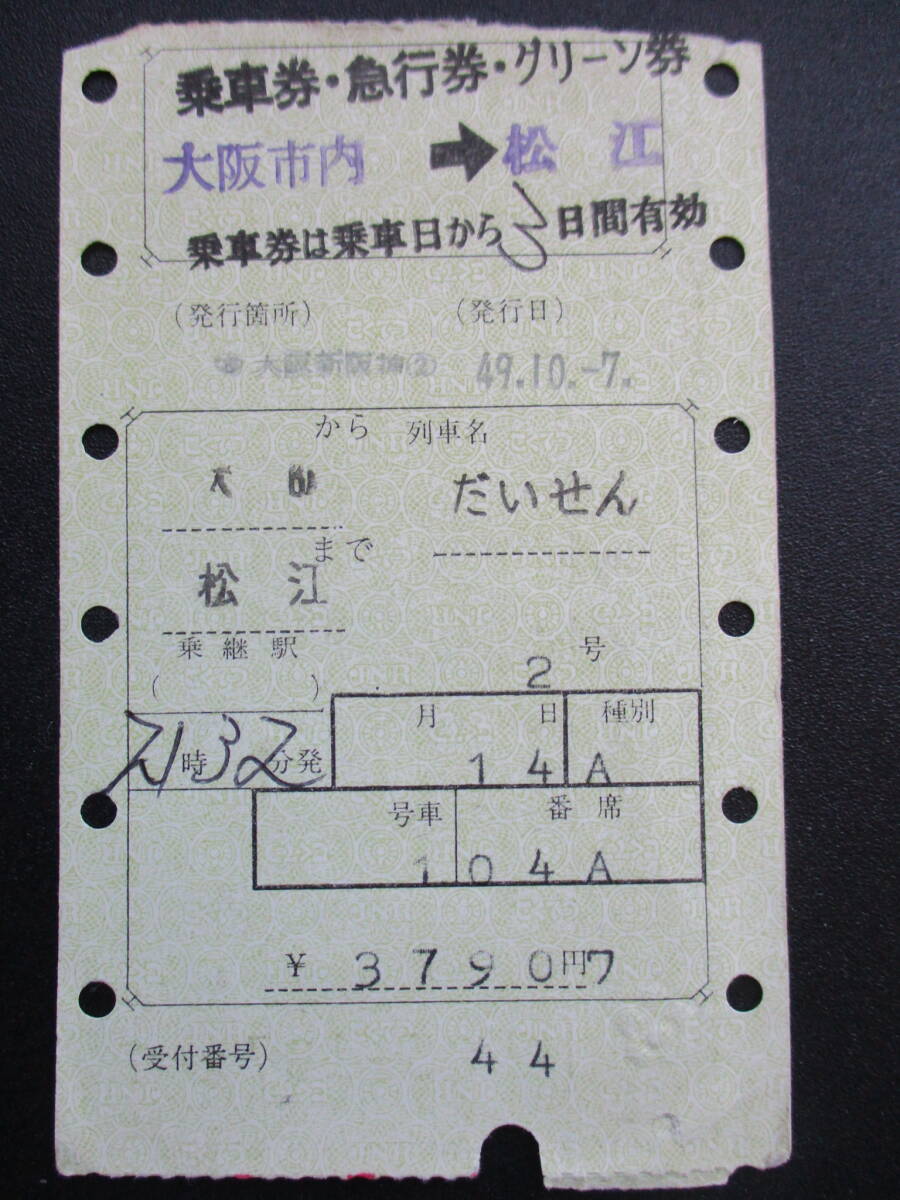 乗車券・急行券・グリーン券
大阪市内 ➡ 松江
乗車券は乗車日から3日間有効
(発行箇所) (発行日)
大阪新阪神② 49.10.-7.
から 列車名
大阪 だいせん
まで
松江
乗継駅
( ) 2号
月 日 種別
時32分発 14 A
号車 番席
1 04A
¥3790円7
(受付番号) 44